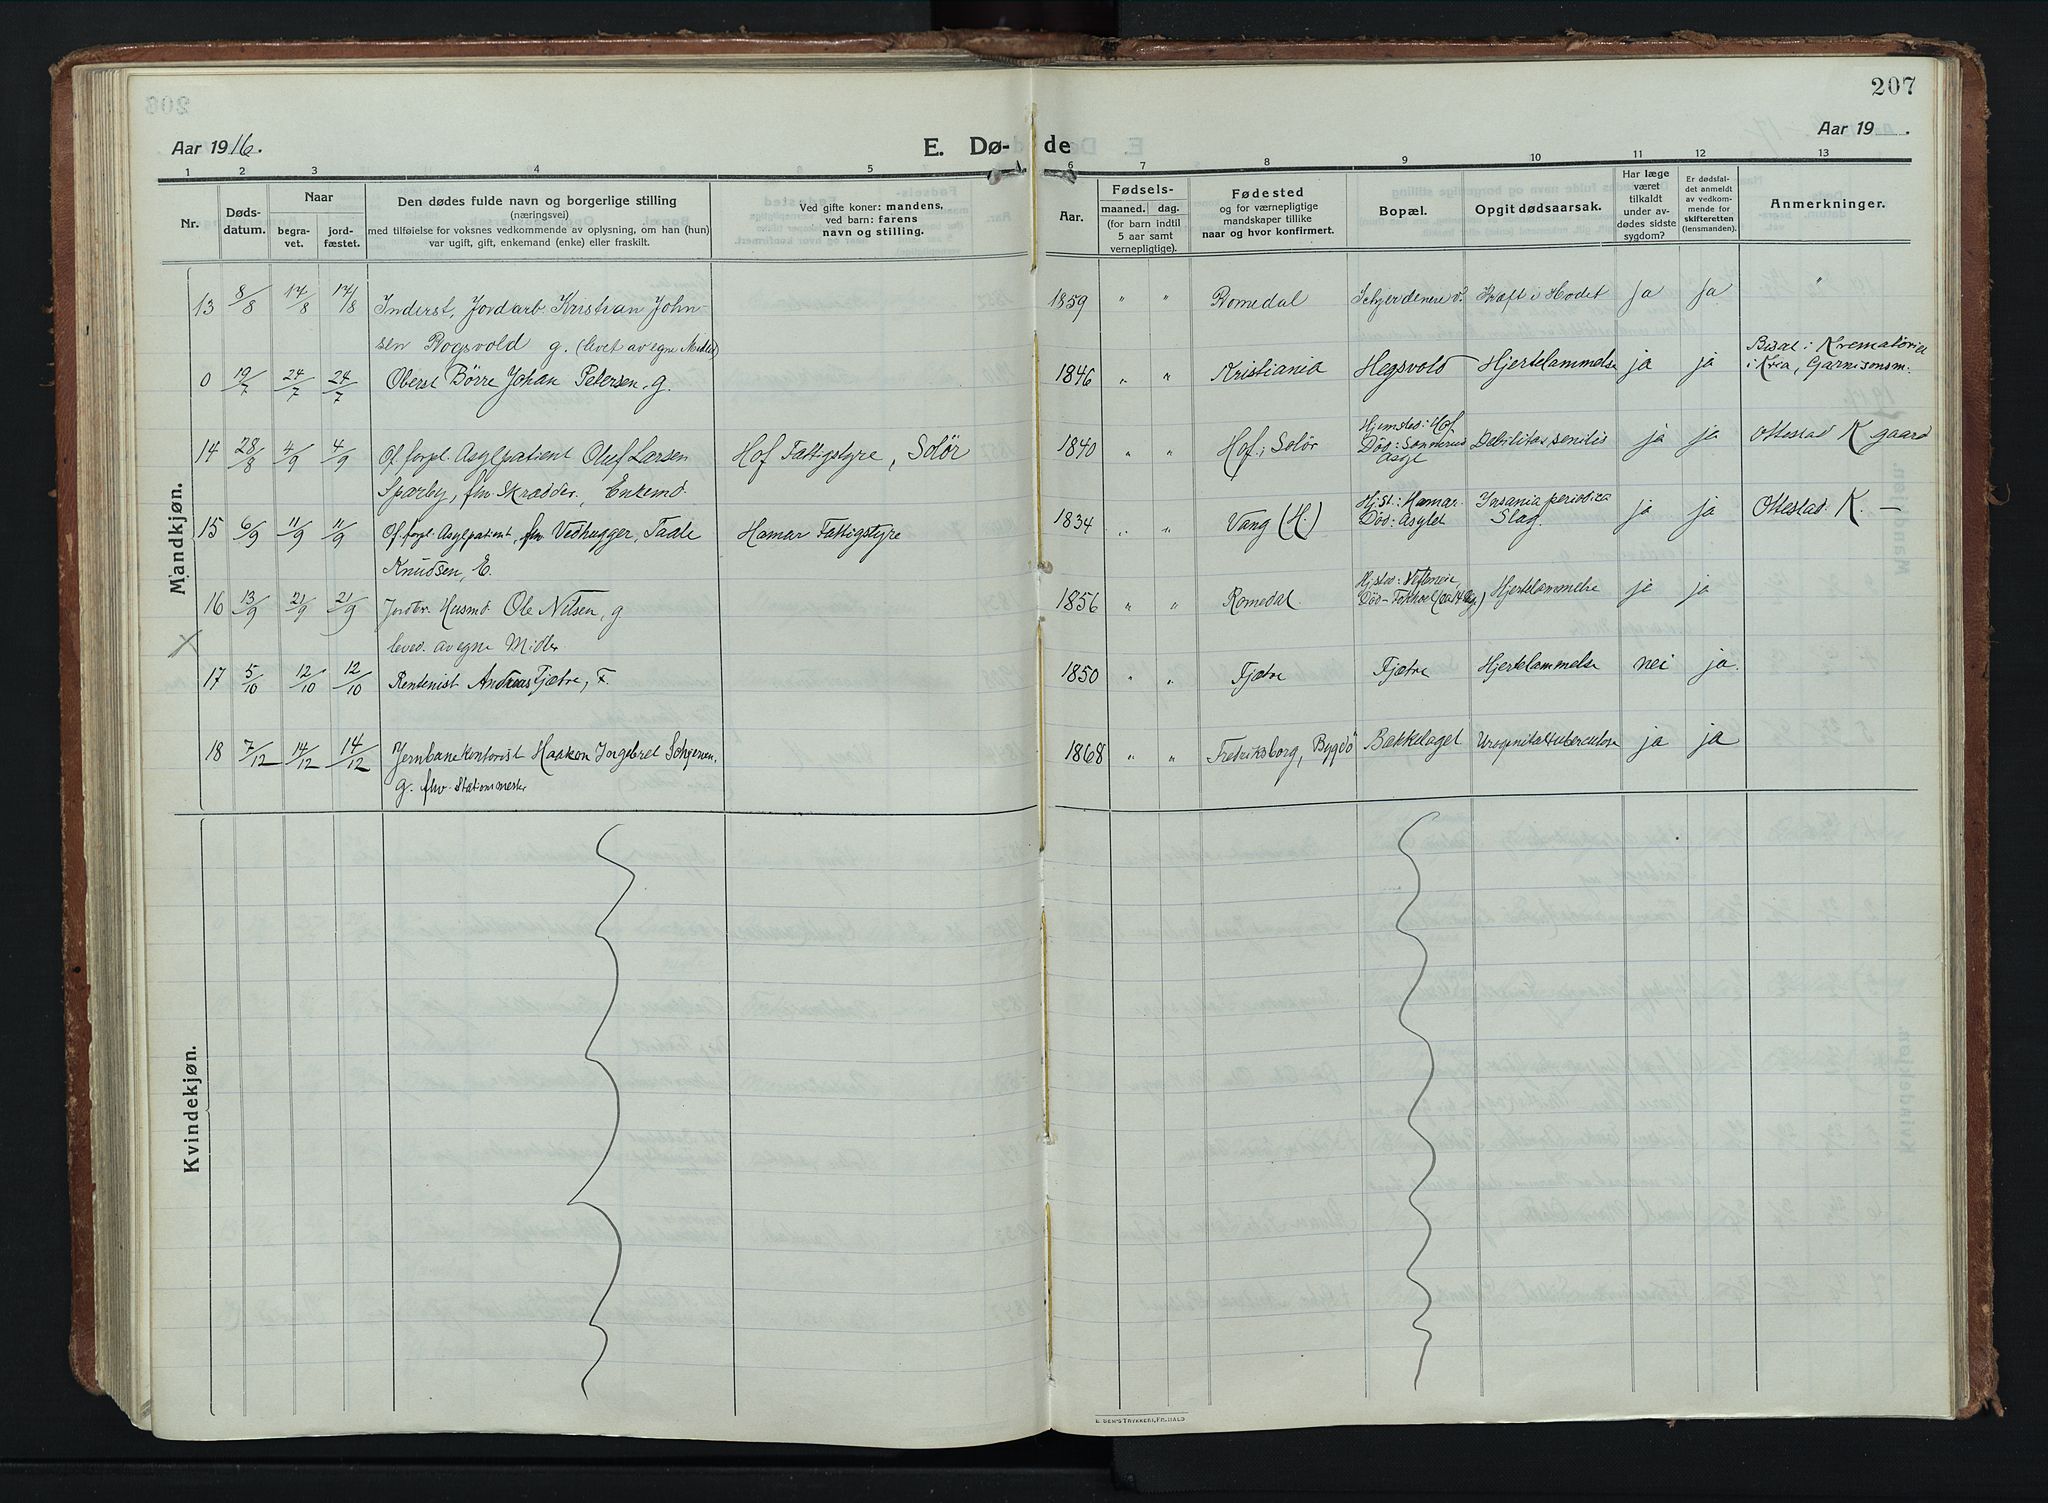 207
Aar 1916.
E. Dø-
de
Aar 19 .
1 2 3 4 5 6 7 8 9 10 11 12 13
Nr.
Døds-
datum.
Naar
begra-
vet.
jord-
fæstet.
Den dødes fulde navn og borgerlige stilling
(næringsvei)
med tilføielse for voksnes vedkommende av oplysning, om han (hun)
var ugift, gift, enkemand (enke) eller fraskilt.
Ved gifte koner: mandens,
ved barn: farens
navn og stilling.
Aar.
Fødsels-
maaned. dag.
(for barn indtil
5 aar samt
vernepligtige).
Fødested
og for værnepligtige
mandskaper tillike
naar og hvor konfirmert.
Bopæl.
Opgit dødsaarsak.
Har læge
været
tilkaldt
under av-
dødes sidste
sygdom?
Er dødsfal-
det anmeldt
av vedkom-
mende for
skifteretten
(lensmanden).
Anmerkninger.
Mandkjøn.
13 8/8 14/8 14/8 Inderst, Jordarb. Kristian John- 1859 " " Romedal Kræft i Hodet ja ja "
sen Rogsvold g. (levet av egne Midler)
0 19/7 24/7 24/7 Oberst Börre Johan Petersen, g. 1846 " " Kristiania Hegsvold Hjertelammelse ja ja Bisat i Krematoriet
i Kria, Garnisonsm.
14 28/8 4/9 4/9 Of. forpl. Asylpatient Oluf Larsen Hof Fattigstyre, Solör 1840 " " Hof i Solör Hjemsted: Hof
Död: Sønnerud
Asyl Debilitas senilis ja ja Ottestad K gaard
Sparby, fhv. Skrædder, Enkemd.
15 6/9 11/9 11/9 Of. forpl. Asylpatient, fhv Vedhugger, Taale Hamar Fattigstyre 1834 " " Vang (H.) Hjst: Hamar
Död: Asylet Insania periodica
Slag. ja ja Ottestad K. —
Knudsen, E.
16 13/9 21/9 21/9 Jordbr. Husmd Ole Nilsen, g 1856 " " Romedal Hjertelammelse ja ja
leved. av egne Midler
17 5/10 12/10 12/10 Rentenist Andreas Fjætre, F. 1850 " " Fjætre Fjætre Hjertelammelse nei ja.
18 7/12 14/12 14/12 Jernbanekontorist Haakon Ingebret Schjerven, 1868 " " Fredriksborg, Bygdö Bækkelaget Urogenitaltuberculose ja ja
g. fhv. Stationsmester
Kvindekjøn.